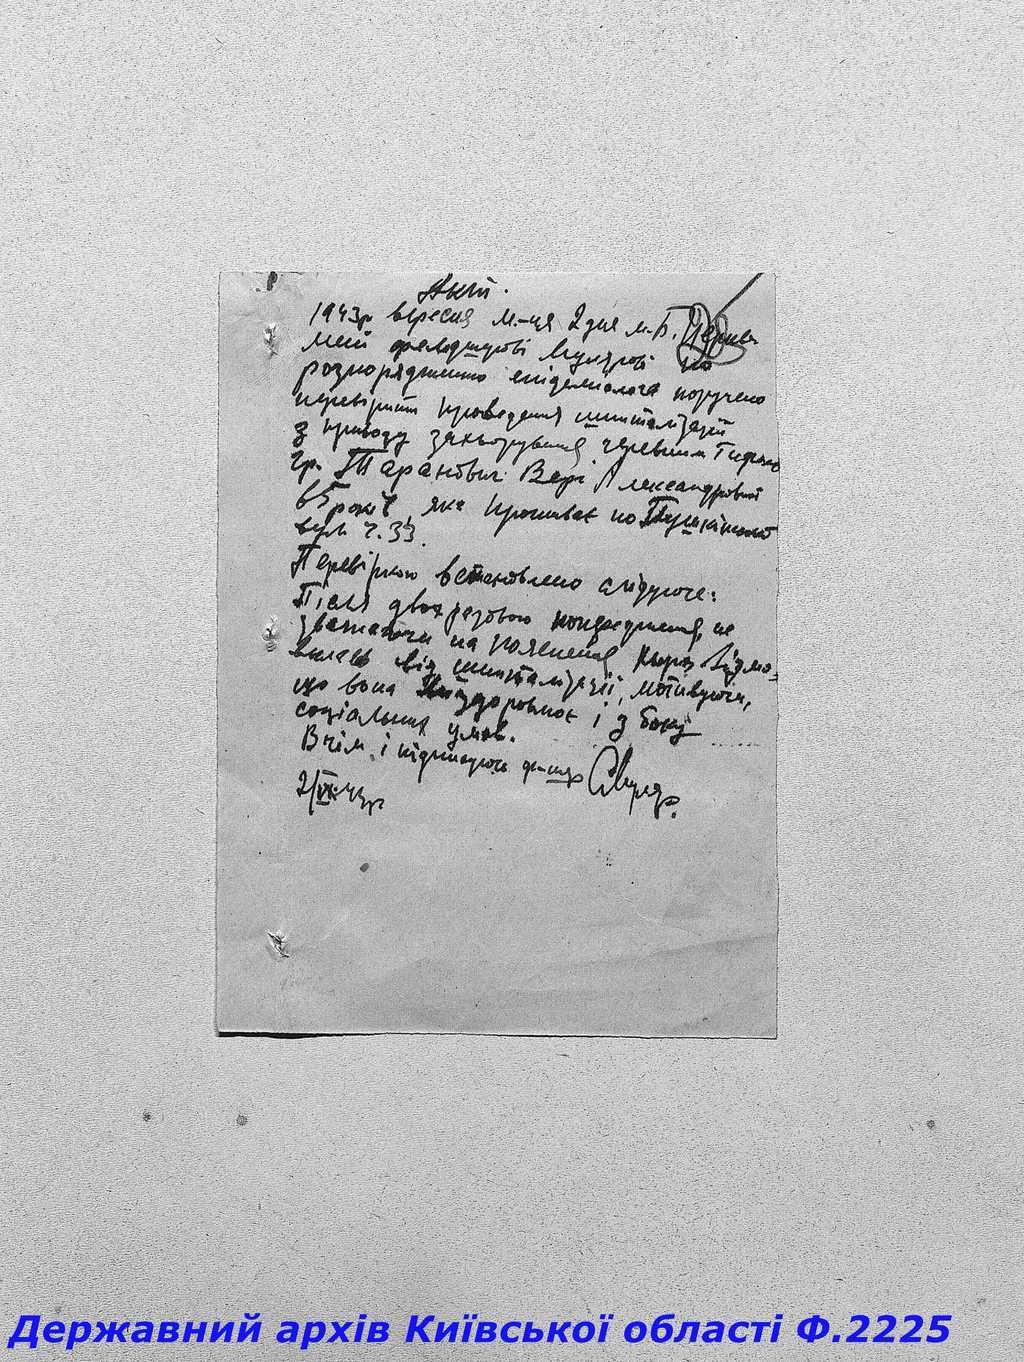 Акт.
1943р вересня м-ця 2 дня м. Б. Церква
Мені фельдшерові по
розпорядженню епідемиолога поручено
перевірити проведення шпиталізації
з приводу захворування черевним тифом
гр. Таранович Вері Александровні
65 років, яка проживає по Пушкінській
вул. ч. 33.
Перевіркою встановлено слідуюче:
Після двохразового попередження, не
зважаючи на пояснення відмо-
вилась від шпиталізації, мотивуючи,
що вона і з боку
соціальних умов.
В чім і підписуюсь ф-шер
2/IX-43р
Державний архів Київської області Ф.2225